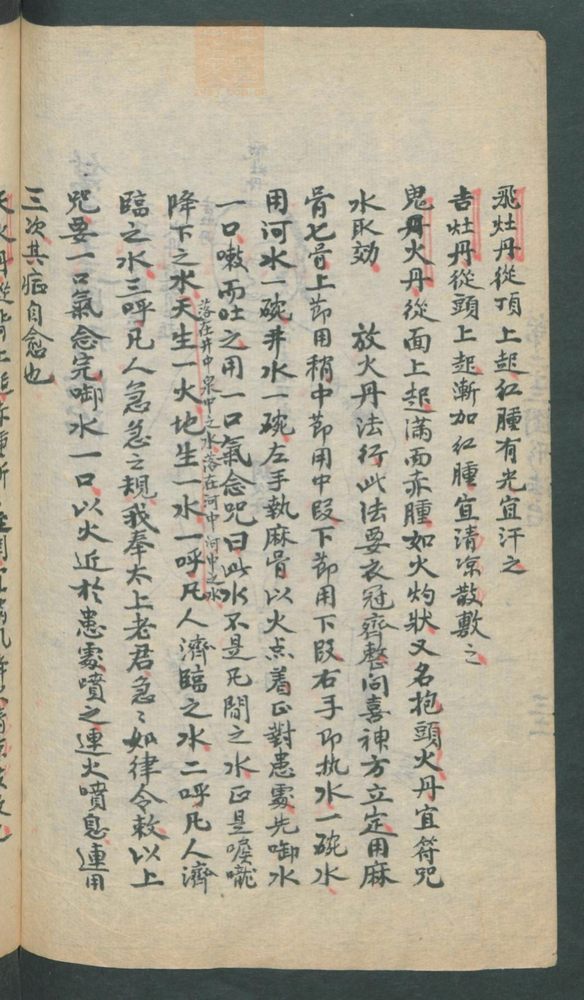 飛灶丹從頂上起紅腫有光宜汗之
吉灶丹從頭上起漸加紅腫宜清凉散敷之
鬼火丹從面上起滿面赤腫如火灼狀又名抱頭火丹宜符咒
水取効 放火丹法行此法要衣冠齊整向喜神方立定用麻
骨七骨上節用稍中節用中段下節用下段右手即执水一碗水
用河水一碗井水一碗左手執麻骨以火点着正對患處先啣水
一口嗽而吐之用一口氣念咒曰此水不是凡間之水正是喉嚨
降下之水天生一火地生一水一呼凡人濟臨之水二呼凡人濟
落在井中泉中之水落在河中河中之水
臨之水三呼凡人急急之規我奉太上老君急々如律令敕以上
咒要一口氣念完啣水一口以火近於患處噴之連火噴息連用
三次其症自愈也